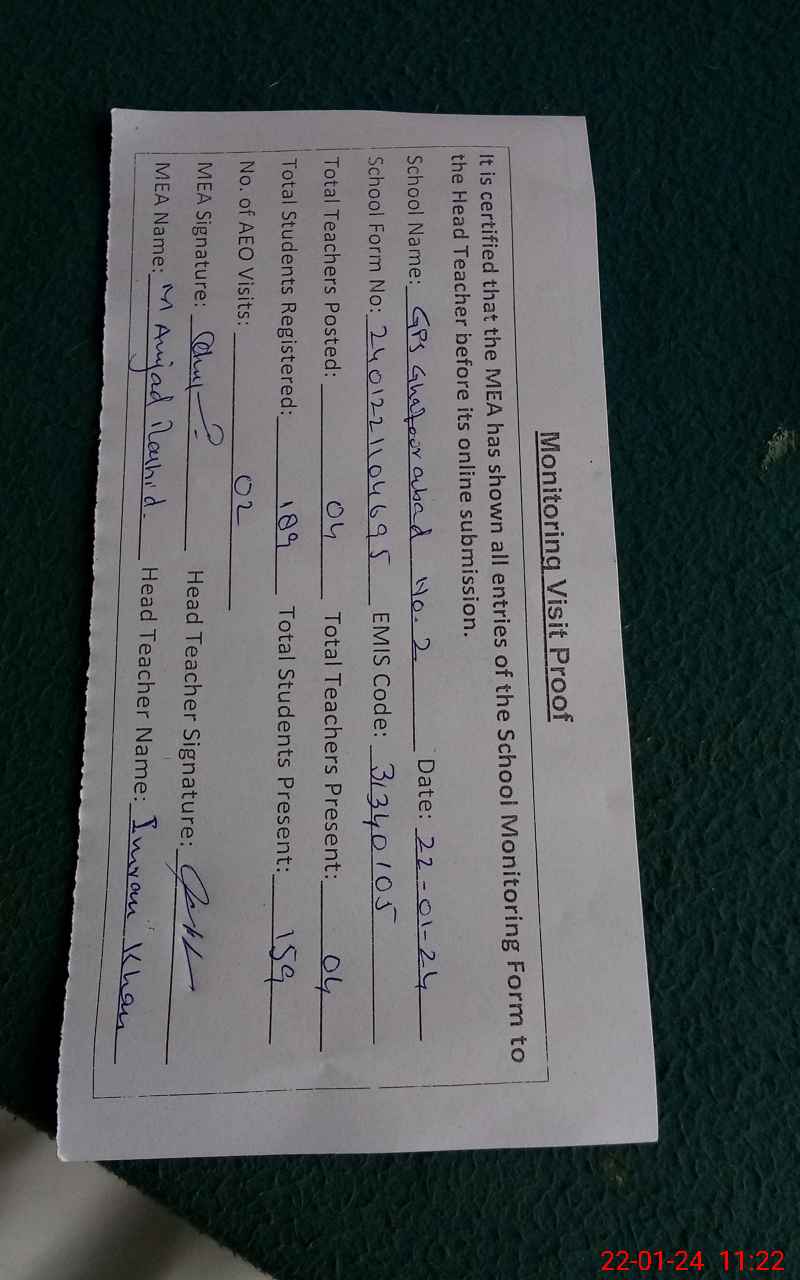 Monitoring Visit Proof
It is certified that the MEA has shown all entries of the School Monitoring Form to
the Head Teacher before its online submission.
School Name: GPS Ghafoorabad No. 2 Date: 22-01-24
School Form No: 2401221104695 EMIS Code: 31340105
Total Teachers Posted: 04 Total Teachers Present: 04
Total Students Registered: 189 Total Students Present: 159
No. of AEO Visits: 02
MEA Signature: Head Teacher Signature:
MEA Name: M Amjad Rashid. Head Teacher Name: Imran Khan
22-01-24 11:22